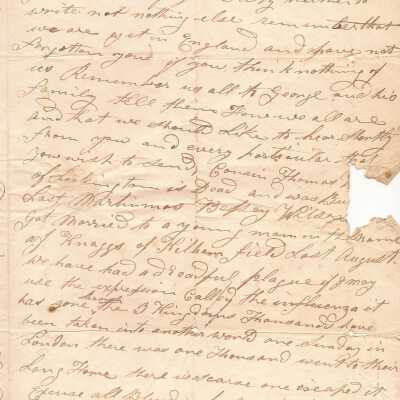 write not nothing else remember that
we are yet in England and have not
Forgotten you if you think nothing of
us Remember us all to George and his
Family tell them How we all are
and that we should Like to hear Shortly
From you and every particular that
you wish to send Cousin Thomas
of is Dead and was
Last Bessey
Got Married to a young man
of Knaggs of field Last August.
we have had a dreadful plague if I may
use the expression Called the influenza it
has gone the 3 Kingdoms Thousands have
been taken into another world one sunday in
London there was one Thousand went to their
Long Home there is scarce one escaped it
Excuse all